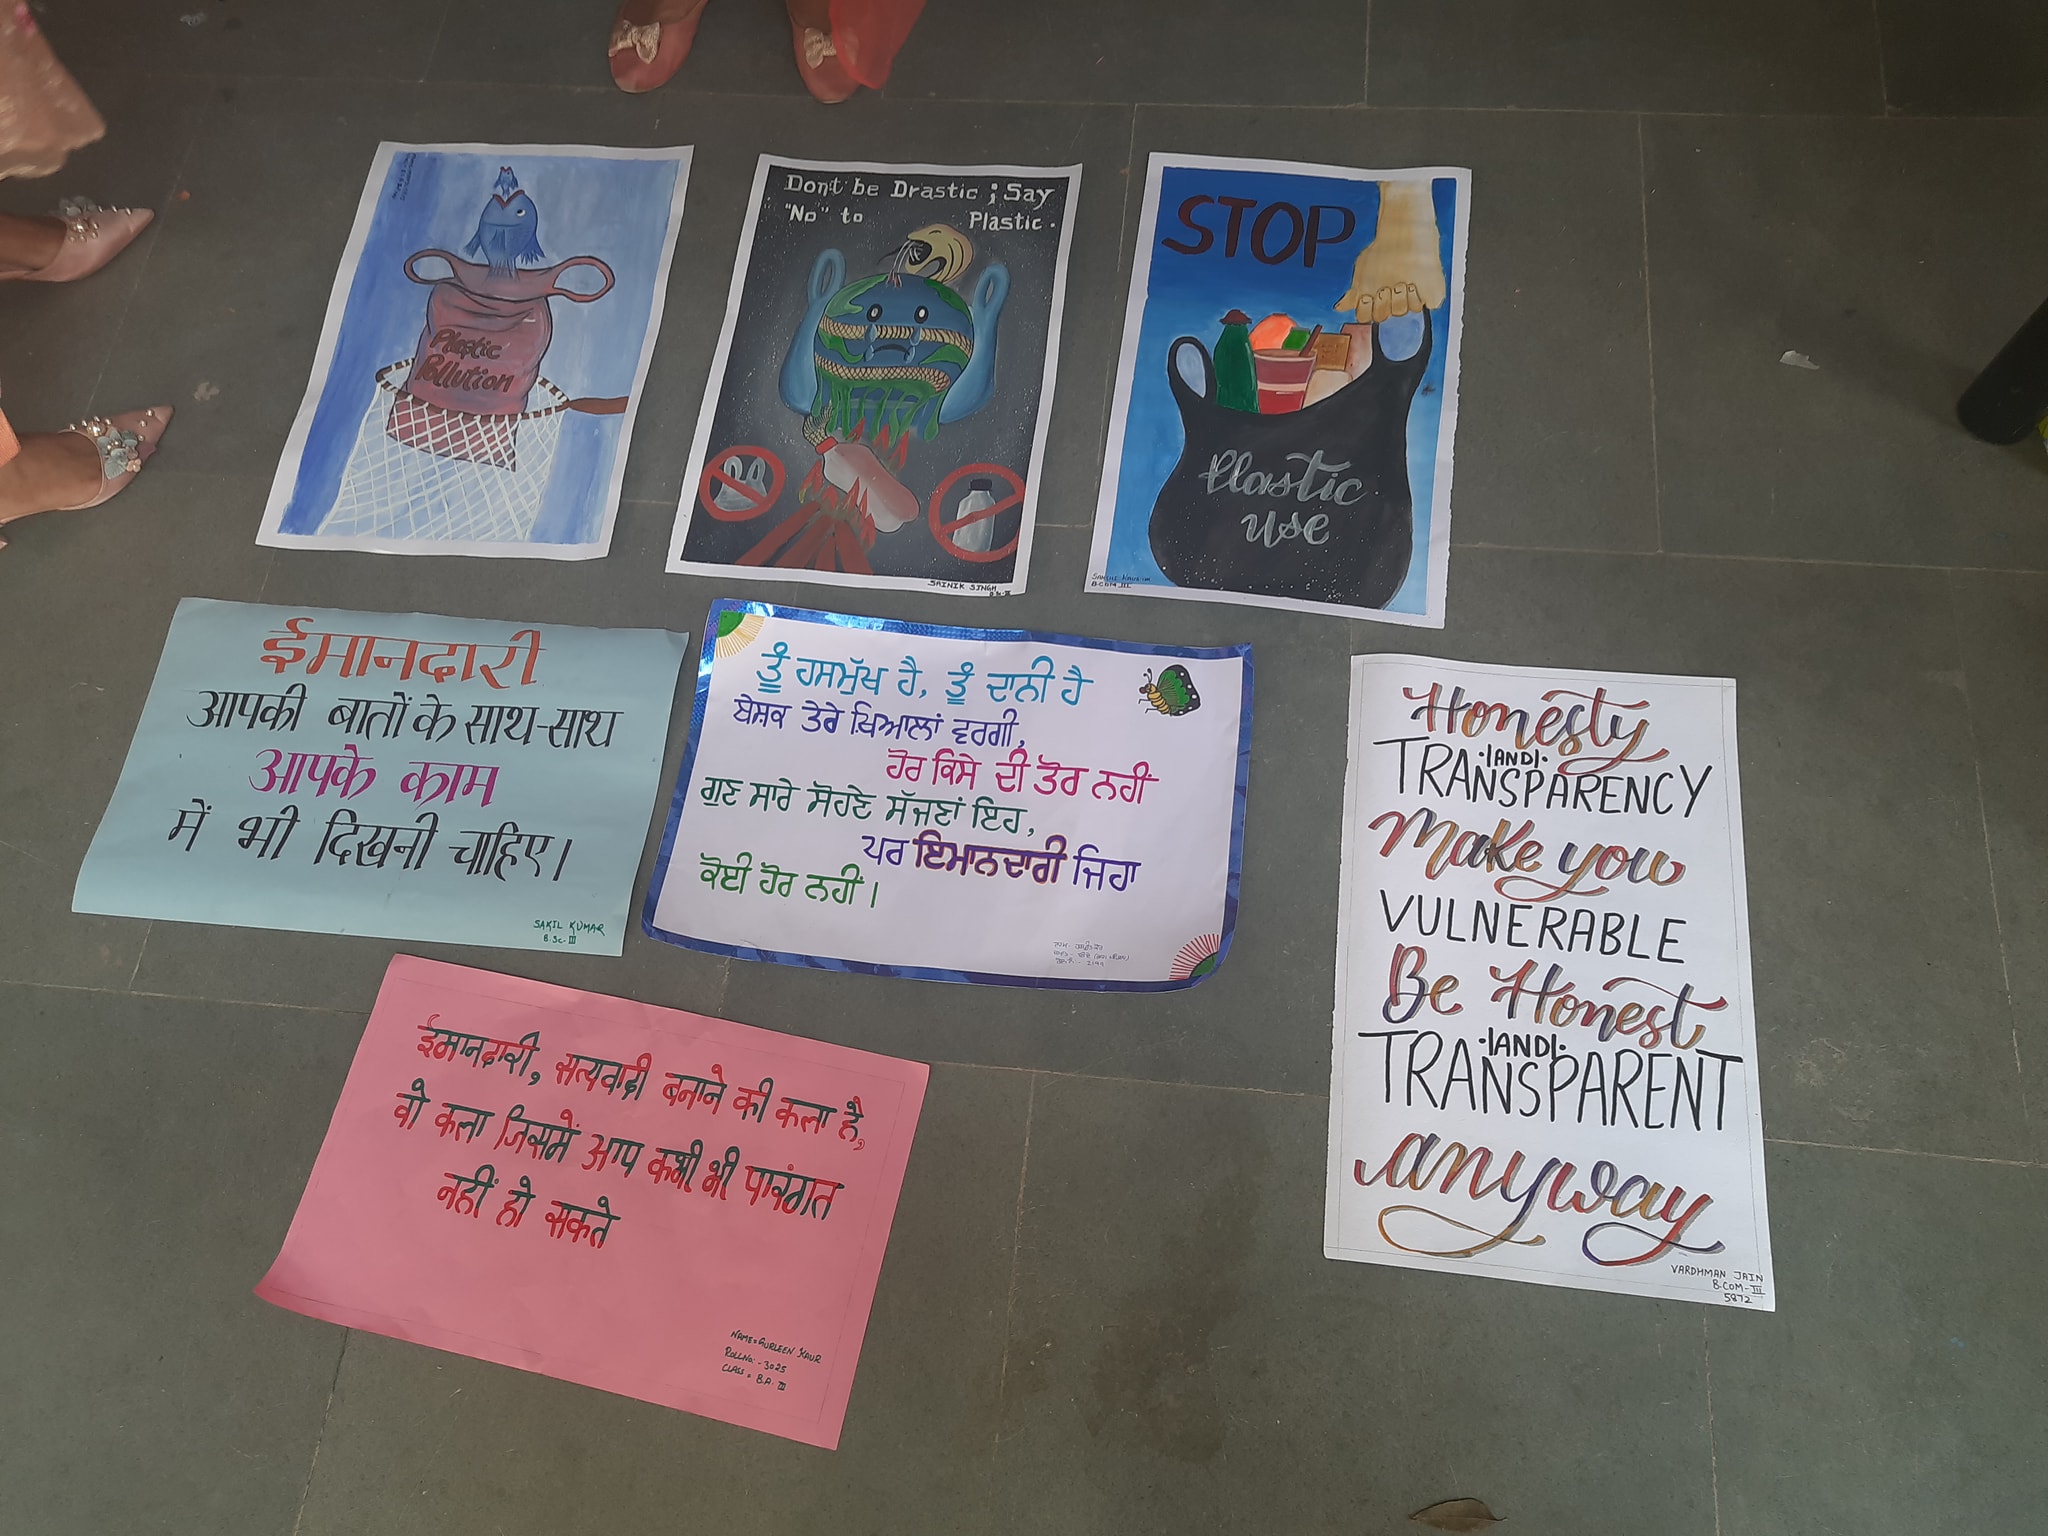 Plastic
Pollution
Dont be Drastic ; Say
"No" to Plastic .
SAINIK SINGH
STOP
Plastic
use
B.COM III
ईमानदारी
आपकी बातों के साथ-साथ
आपके काम
में भी दिखनी चाहिए।
SAKIL KUMAR
B.Sc-III
ਤੂੰ ਹਸਮੁੱਖ ਹੈ, ਤੂੰ ਦਾਨੀ ਹੈ
ਬੇਸ਼ਕ ਤੇਰੇ ਖ਼ਿਆਲਾਂ ਵਰਗੀ,
ਹੋਰ ਕਿਸੇ ਦੀ ਤੋਰ ਨਹੀਂ
ਗੁਣ ਸਾਰੇ ਸੋਹਣੇ ਸੱਜਣਾਂ ਇਹ,
ਪਰ ਇਮਾਨਦਾਰੀ ਜਿਹਾ
ਕੋਈ ਹੋਰ ਨਹੀਂ।
Honesty
·|AND|·
TRANSPARENCY
Make you
VULNERABLE
Be Honest
·|AND|·
TRANSPARENT
anyway
VARDHMAN JAIN
B.COM-III
5872
ईमानदारी, सत्यवादी बनाने की कला है,
वो कला जिसमें आप कभी भी पारंगत
नहीं हो सकते
NAME=GURLEEN KAUR
ROLLNo:-3025
CLASS = B.A. III